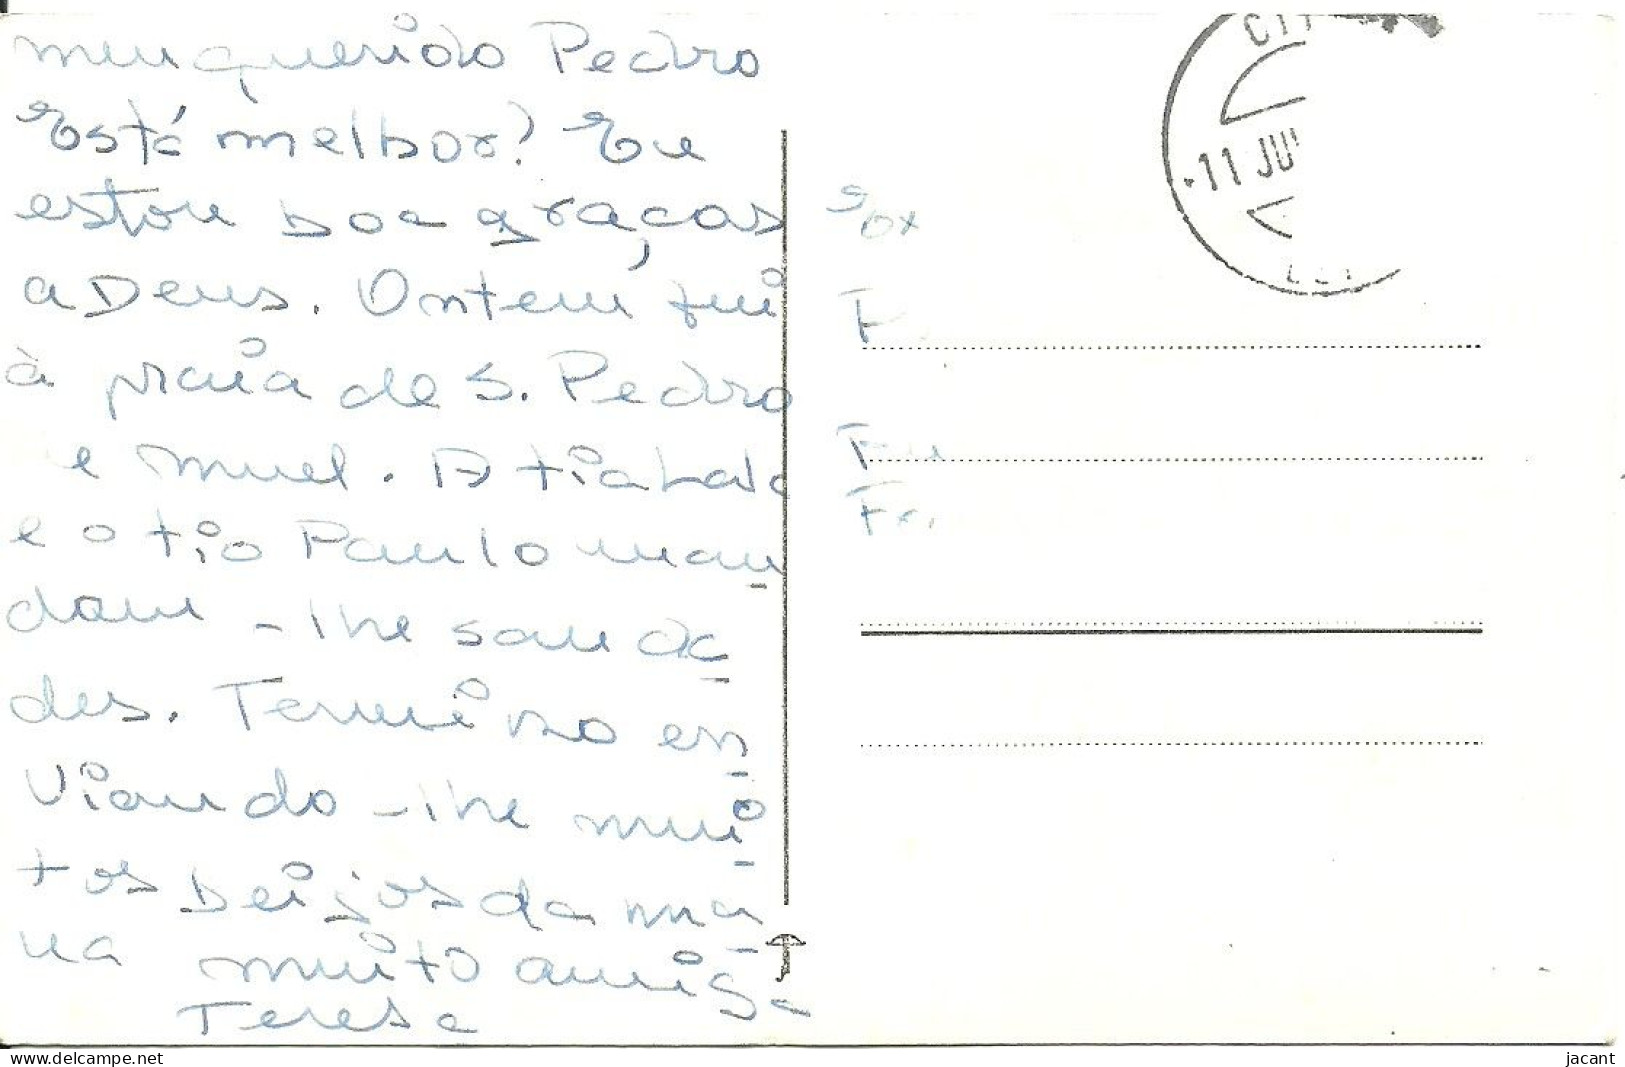 meu querido Pedro
Está melhor? Eu
estou boa graças
a Deus. Ontem fui
à praia de S. Pedro
e muel. A tia Lala
e o tio Paulo man
dam-lhe sauda
des. Termino en
viando-lhe mui
tos beijos da ma
na muito amiga
Teresa
11 JU
delcampe.net
jacant